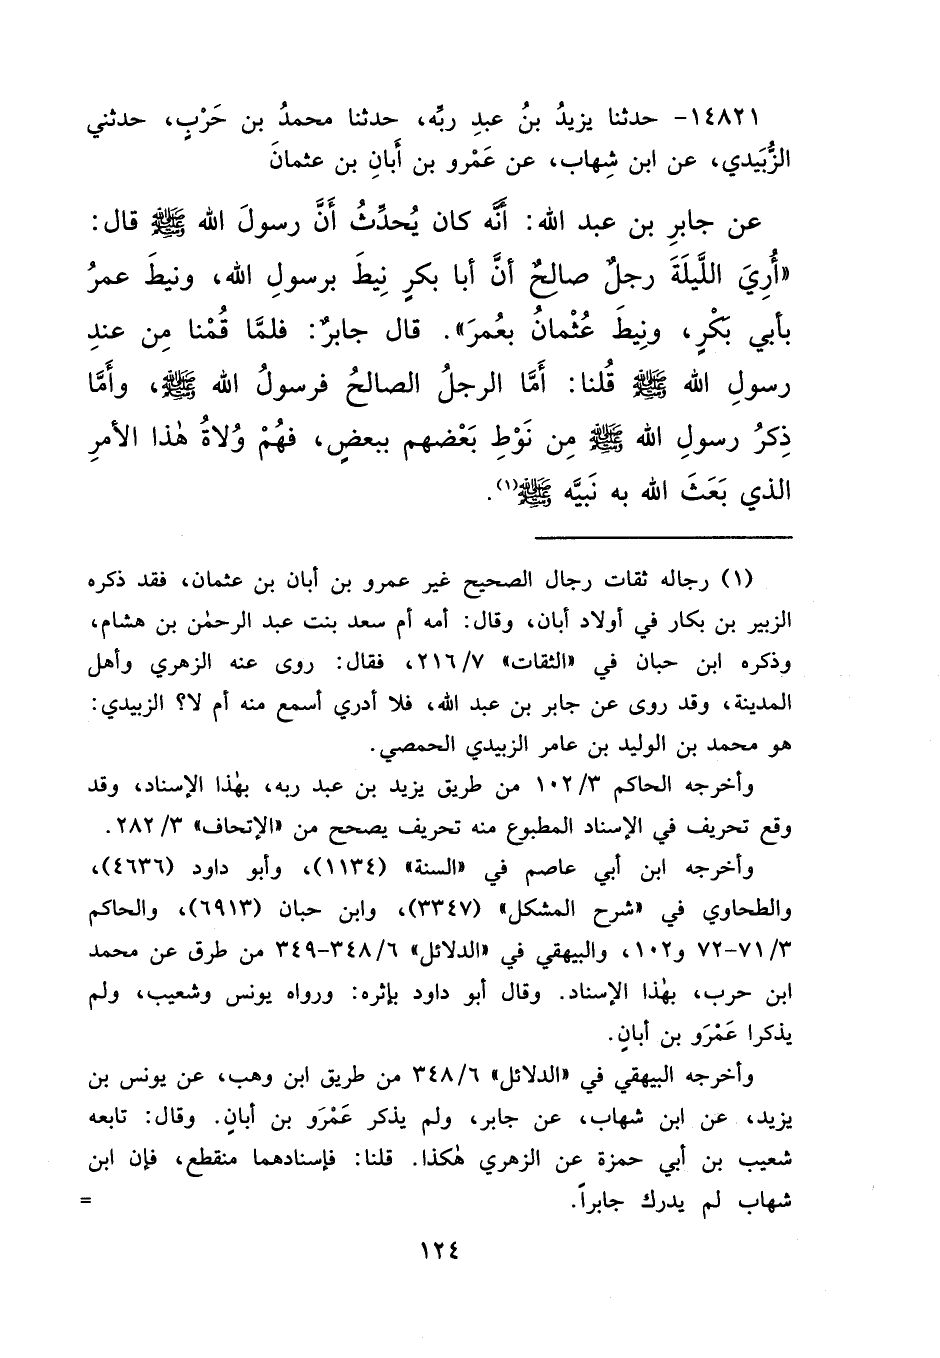 ١٤٨٢١- حدثنا يزيدُ بنُ عبدِ ربِّه، حدثنا محمدُ بن حَرْبٍ، حدثني
الزُّبَيدي، عن ابن شِهاب، عن عَمْرو بن أَبانِ بن عثمانَ
عن جابرِ بن عبد الله: أَنَّه كان يُحدِّثُ أَنَّ رسولَ الله ﷺ قال:
«أُرِيَ اللَّيلَةَ رجلٌ صالحٌ أنَّ أبا بكرٍ نِيطَ برسولِ الله، ونيطَ عمرُ
بأبي بَكْرٍ، ونِيطَ عُثْمانُ بعُمرَ». قال جابرٌ: فلمَّا قُمْنا مِن عندِ
رسولِ الله ﷺ قُلنا: أَمَّا الرجلُ الصالحُ فرسولُ الله ﷺ، وأَمَّا
ذِكرُ رسولِ الله ﷺ مِن نَوْطِ بَعْضهم ببعضٍ، فهُمْ وُلاةُ هٰذا الأمرِ
الذي بَعَثَ الله به نَبيَّه ﷺ(١).
(١) رجاله ثقات رجال الصحيح غير عمرو بن أبان بن عثمان، فقد ذكره
الزبير بن بكار في أولاد أبان، وقال: أمه أم سعد بنت عبد الرحمٰن بن هشام،
وذكره ابن حبان في «الثقات» ٢١٦/٧، فقال: روى عنه الزهري وأهل
المدينة، وقد روى عن جابر بن عبد الله، فلا أدري أسمع منه أم لا؟ الزبيدي:
هو محمد بن الوليد بن عامر الزبيدي الحمصي.
وأخرجه الحاكم ١٠٢/٣ من طريق يزيد بن عبد ربه، بهٰذا الإسناد، وقد
وقع تحريف في الإسناد المطبوع منه تحريف يصحح من «الإتحاف» ٢٨٢/٣.
وأخرجه ابن أبي عاصم في «السنة» (١١٣٤)، وأبو داود (٤٦٣٦)،
والطحاوي في «شرح المشكل» (٣٣٤٧)، وابن حبان (٦٩١٣)، والحاكم
٧١/٣-٧٢ و١٠٢، والبيهقي في «الدلائل» ٣٤٨/٦-٣٤٩ من طرق عن محمد
ابن حرب، بهٰذا الإسناد. وقال أبو داود بإثره: ورواه يونس وشعيب، ولم
يذكرا عَمْرَو بن أبانٍ.
وأخرجه البيهقي في «الدلائل» ٣٤٨/٦ من طريق ابن وهب، عن يونس بن
يزيد، عن ابن شهاب، عن جابر، ولم يذكر عَمْرَو بن أبانٍ. وقال: تابعه
شعيب بن أبي حمزة عن الزهري هٰكذا. قلنا: فإسنادهما منقطع، فإن ابن
شهاب لم يدرك جابراً. =
١٢٤